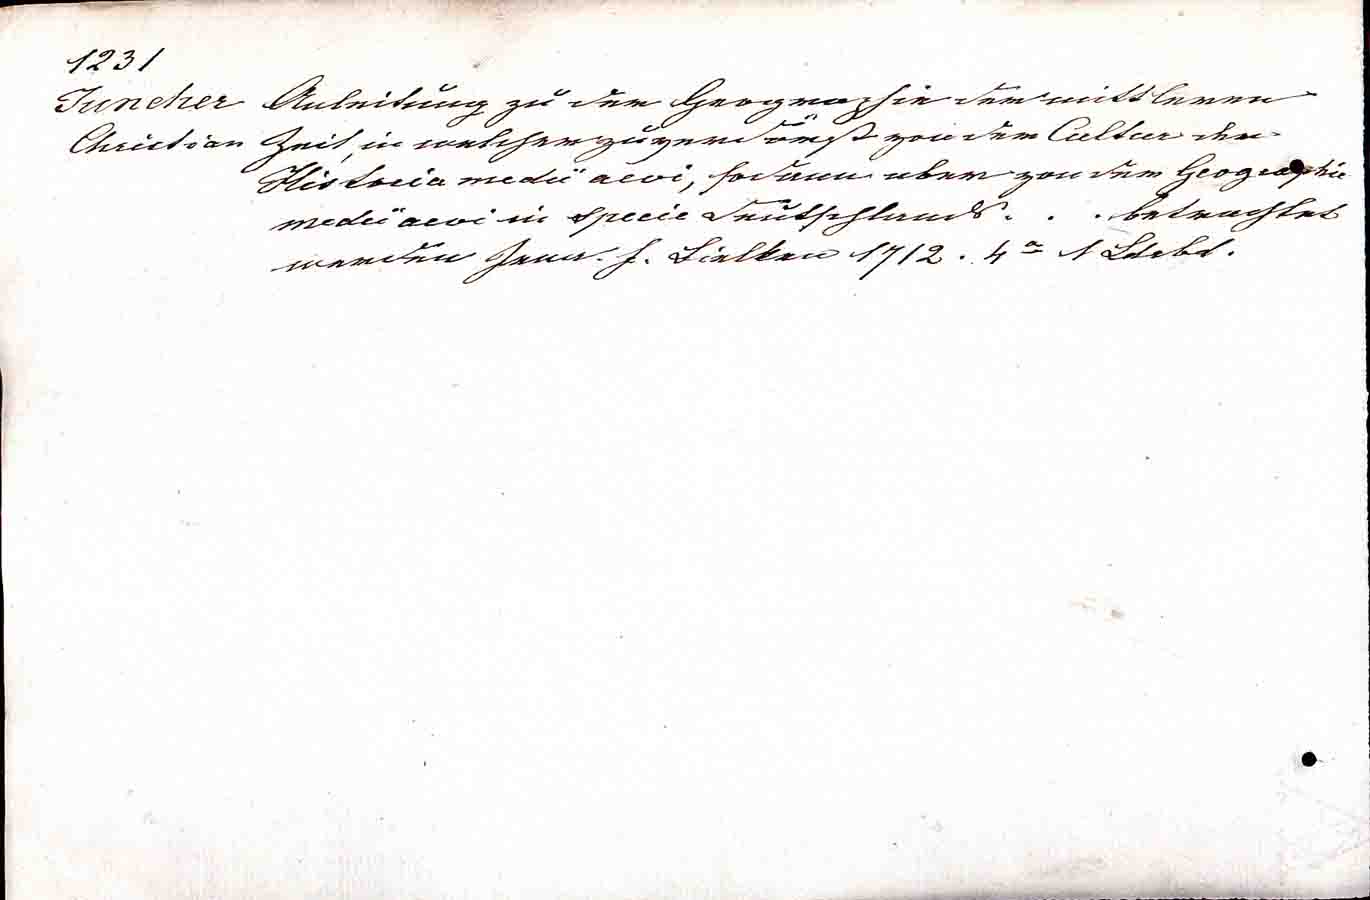 1231
Juncker Anleitung zu der Geographie der mittleren
Christian Zeit, in welcher zuvorderst von der Cultur der
Historia medii aevi, sodann aber von der Geographie
medii aevi in specie Deutschlands. . . betrachtet
werden Jena. J. Bielken 1712. 4° 1